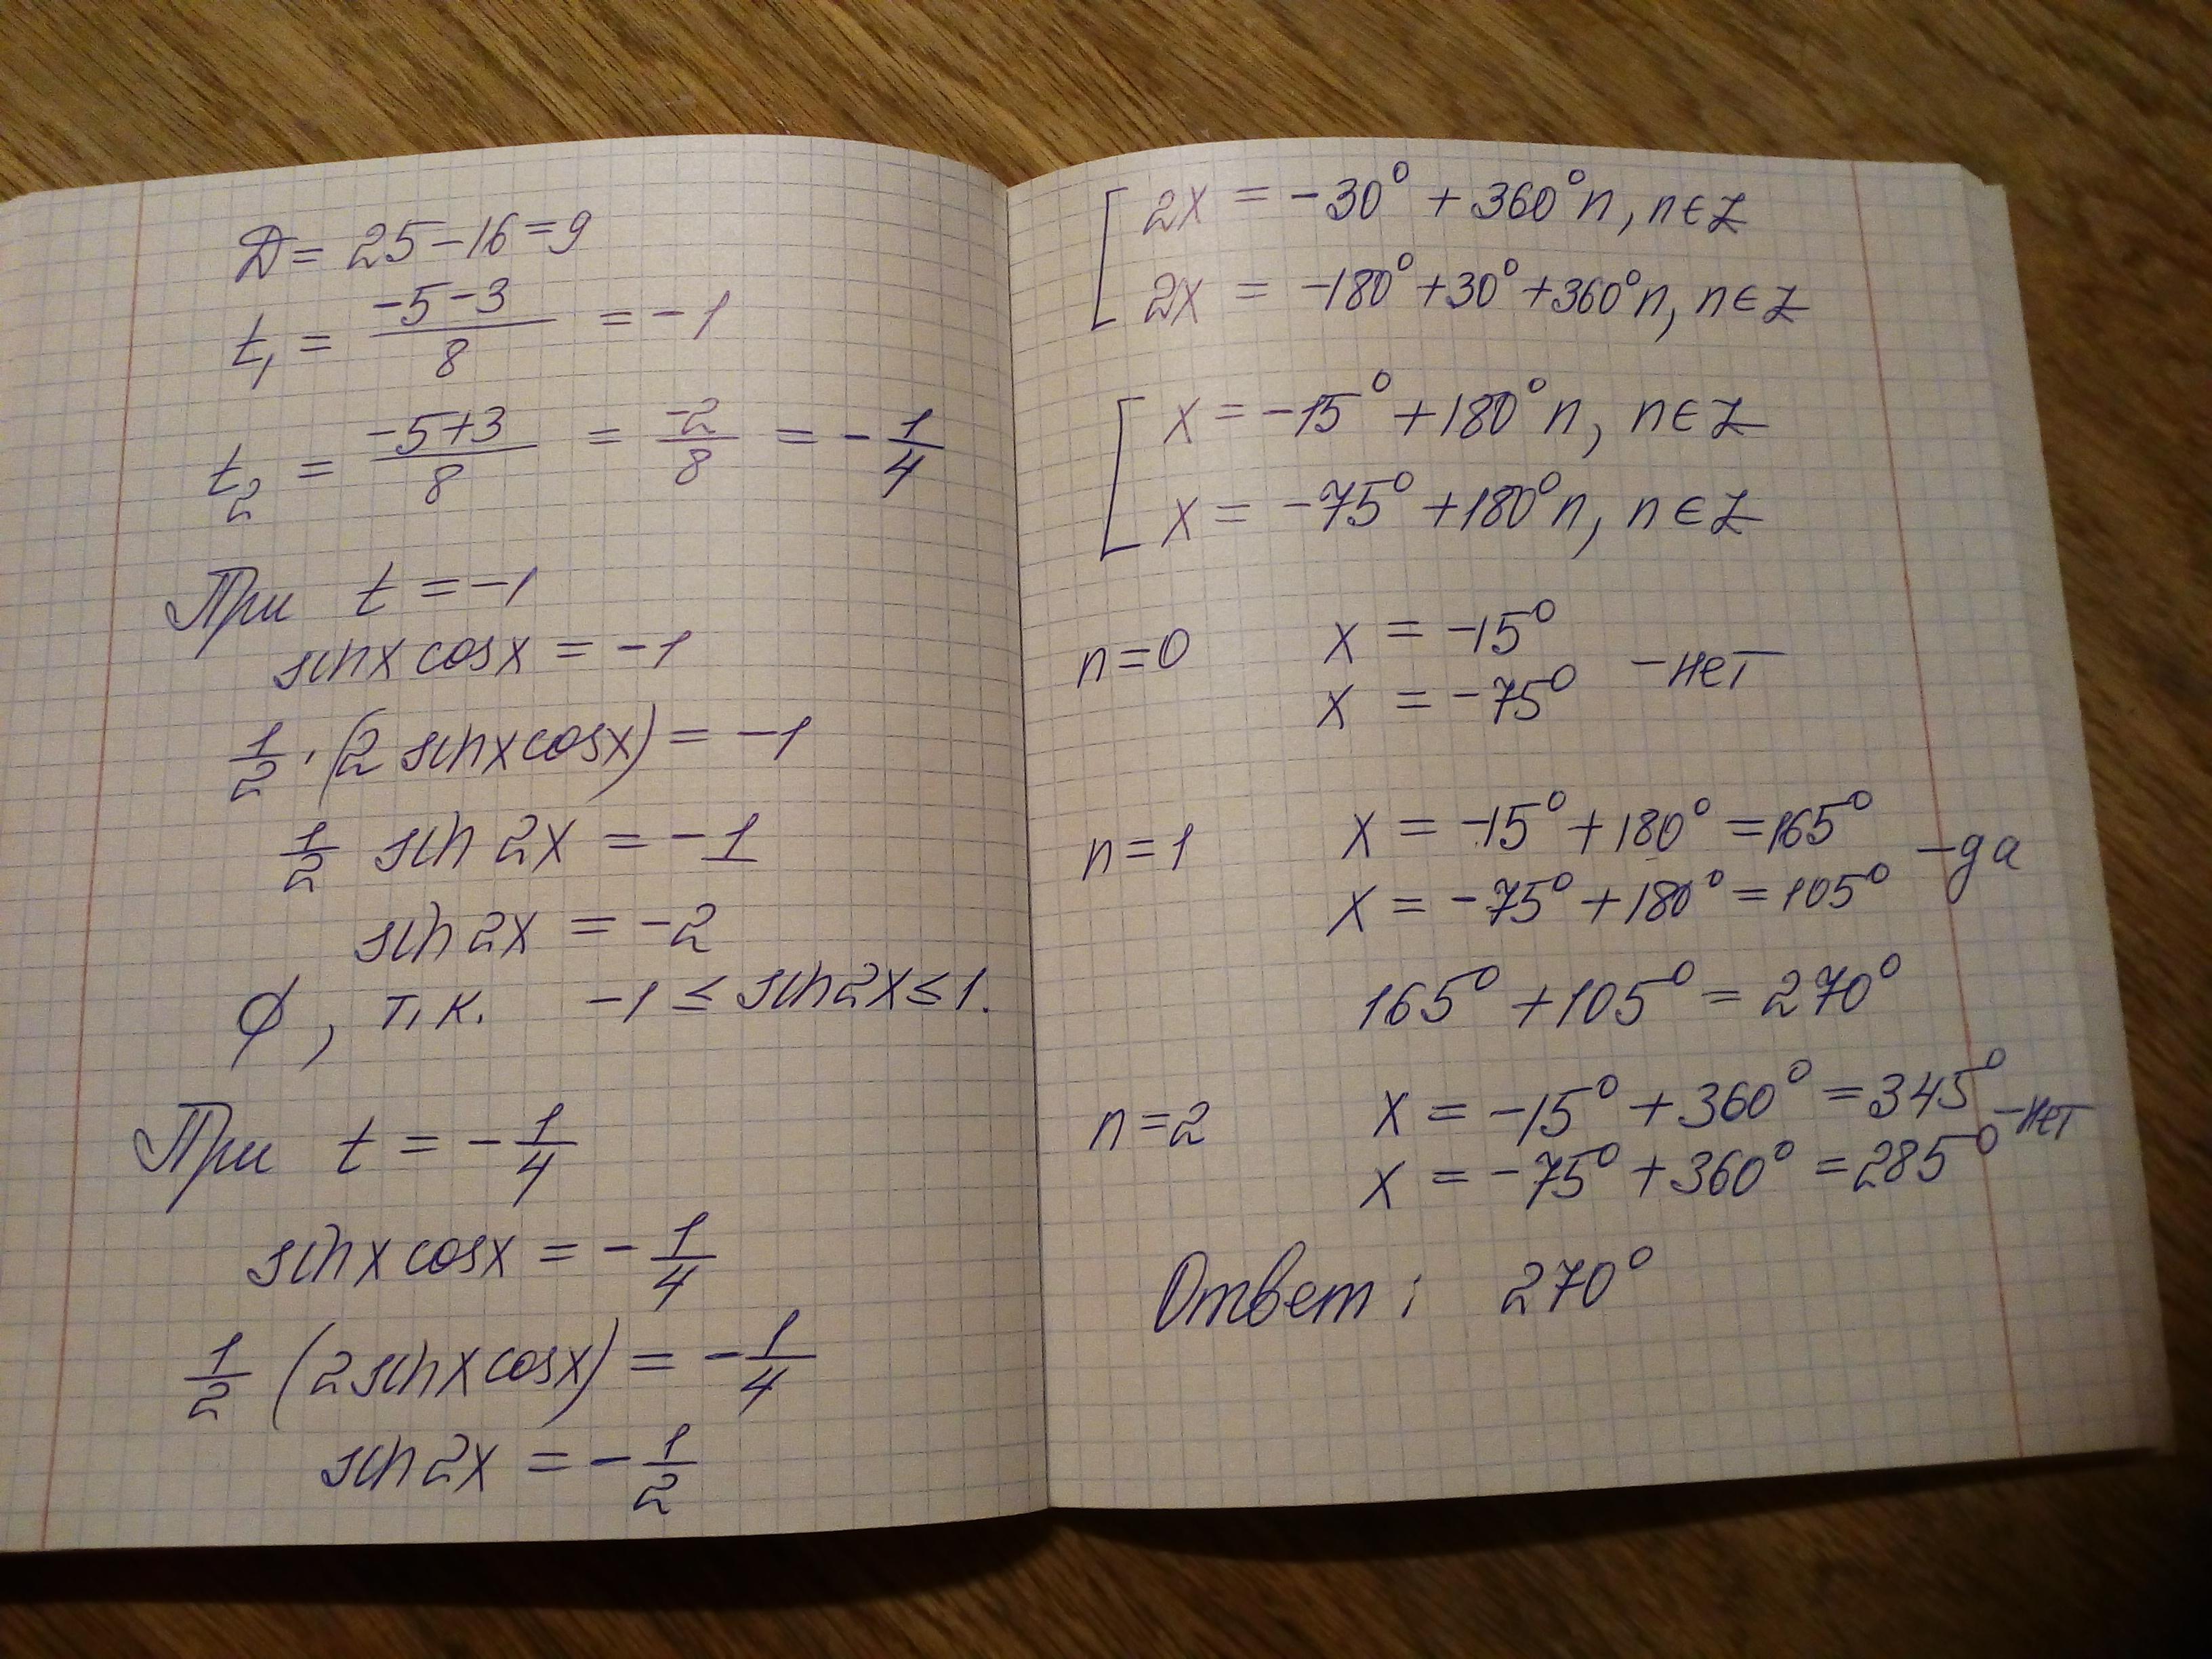 Д = 25 - 16 = 9
t₁ = (-5-3)/8 = -1
t₂ = (-5+3)/8 = -2/8 = -1/4
При t = -1
sinx cosx = -1
1/2 · (2 sinx cosx) = -1
1/2 sin 2x = -1
sin 2x = -2
∅, т.к. -1 ≤ sin2x ≤ 1.
При t = -1/4
sinx cosx = -1/4
1/2 (2sinx cosx) = -1/4
sin 2x = -1/2
[ 2x = -30° + 360°n, n∈Z
2x = -180° + 30° + 360°n, n∈Z
[ x = -15° + 180°n, n∈Z
x = -75° + 180°n, n∈Z
n=0 x = -15°
x = -75° - нет
n=1 x = -15° + 180° = 165°
x = -75° + 180° = 105° - да
165° + 105° = 270°
n=2 x = -15° + 360° = 345°
x = -75° + 360° = 285° - нет
Ответ: 270°